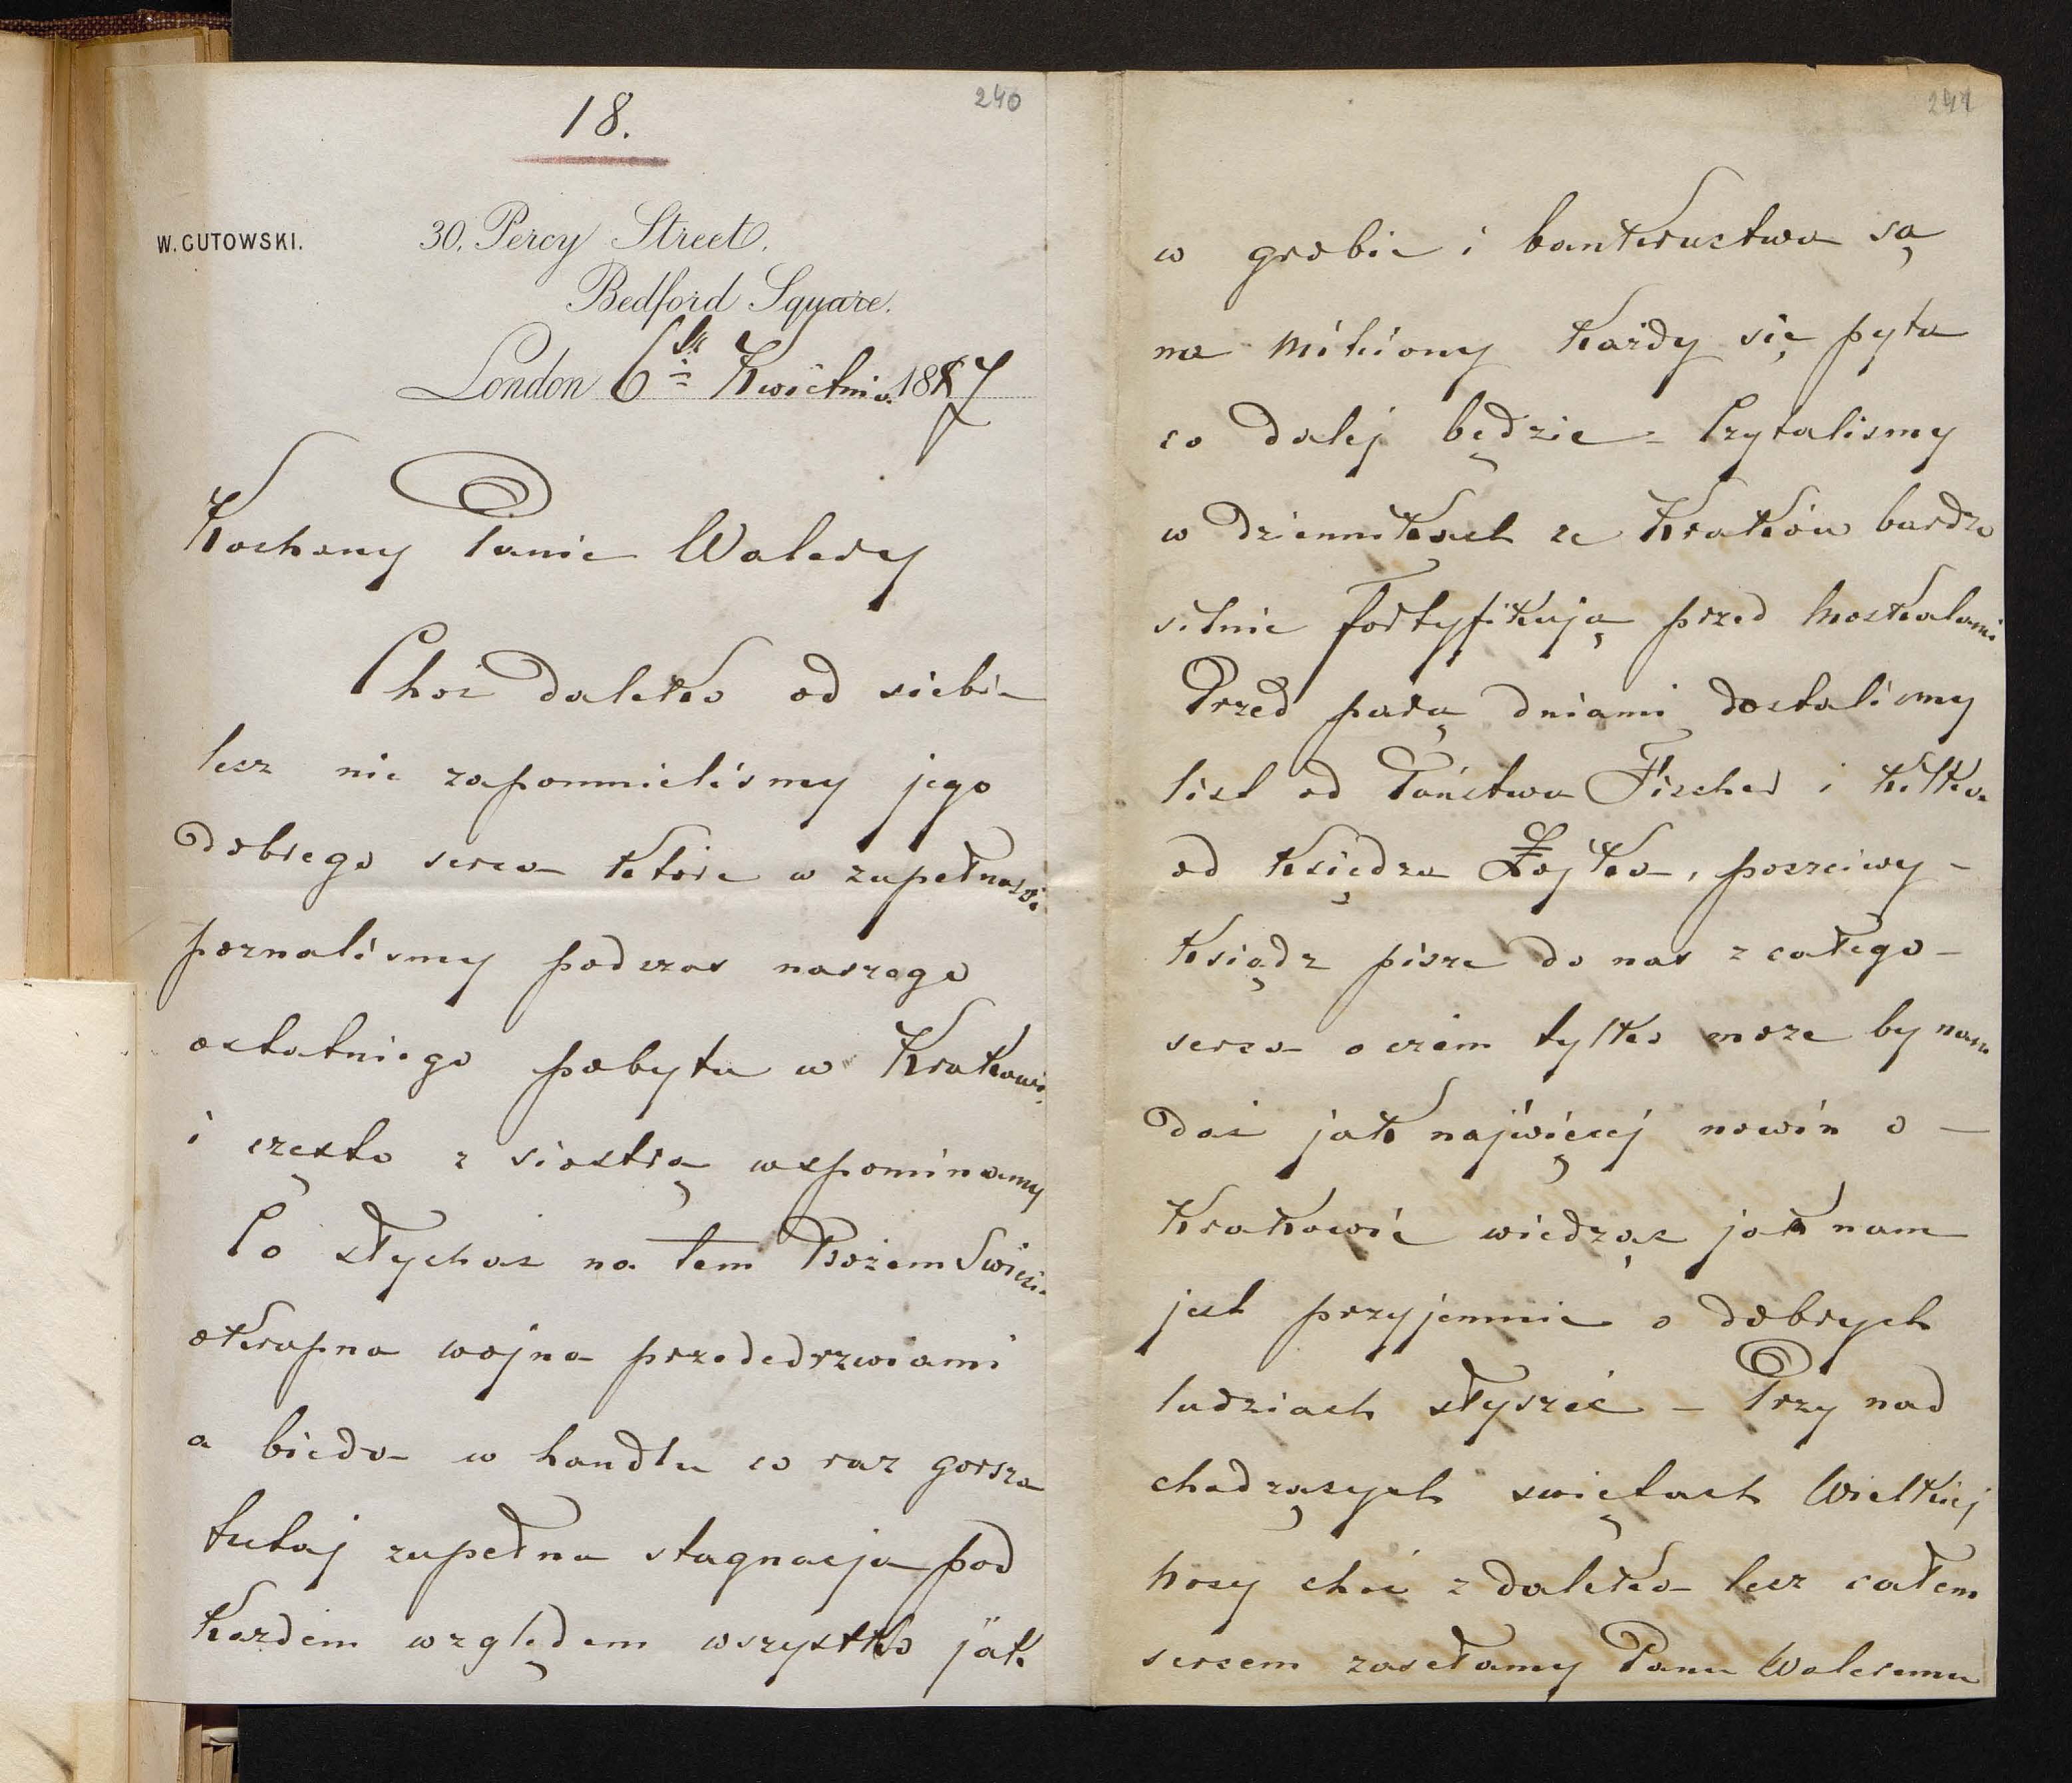 18.
240
W. GUTOWSKI.
30, Percy Street,
Bedford Square.
London 6go Kwietnia 1887
Kochany Panie Walery
Choć daleko od siebie
lecz nie zapomnieliśmy jego
dobrego serca które w zupełności
poznaliśmy podczas naszego
ostatniego pobytu w Krakowie
i często z siostrą wspominamy
Co słychać na tem Bożem Świecie
okropna wojna przededrzwiami
a bieda w handlu co raz gorsza
tutaj zupełna stagnacja pod
każdem względem wszystko jak
241
w grobie i bankructwa są
na miliony każdy się pyta
co dalej będzie – Czytaliśmy
w dziennikach ze Kraków bardzo
silnie fortyfikują przed Moskalami
Przed parą dniami dostaliśmy
list od Państwa Fischer i kilka
od księdza Łojka, poczciwy –
ksiądz pisze do nas z całego –
serca o czem tylko może by nam
dać jak najwięcej nowin o –
Krakowie wiedząc jak nam
jest przyjemnie o dobrych
ludziach słyszeć – Przy nad
chodzących świętach Wielkiej
nocy choć z daleka lecz całem
sercem zasełamy Panu Waleremu